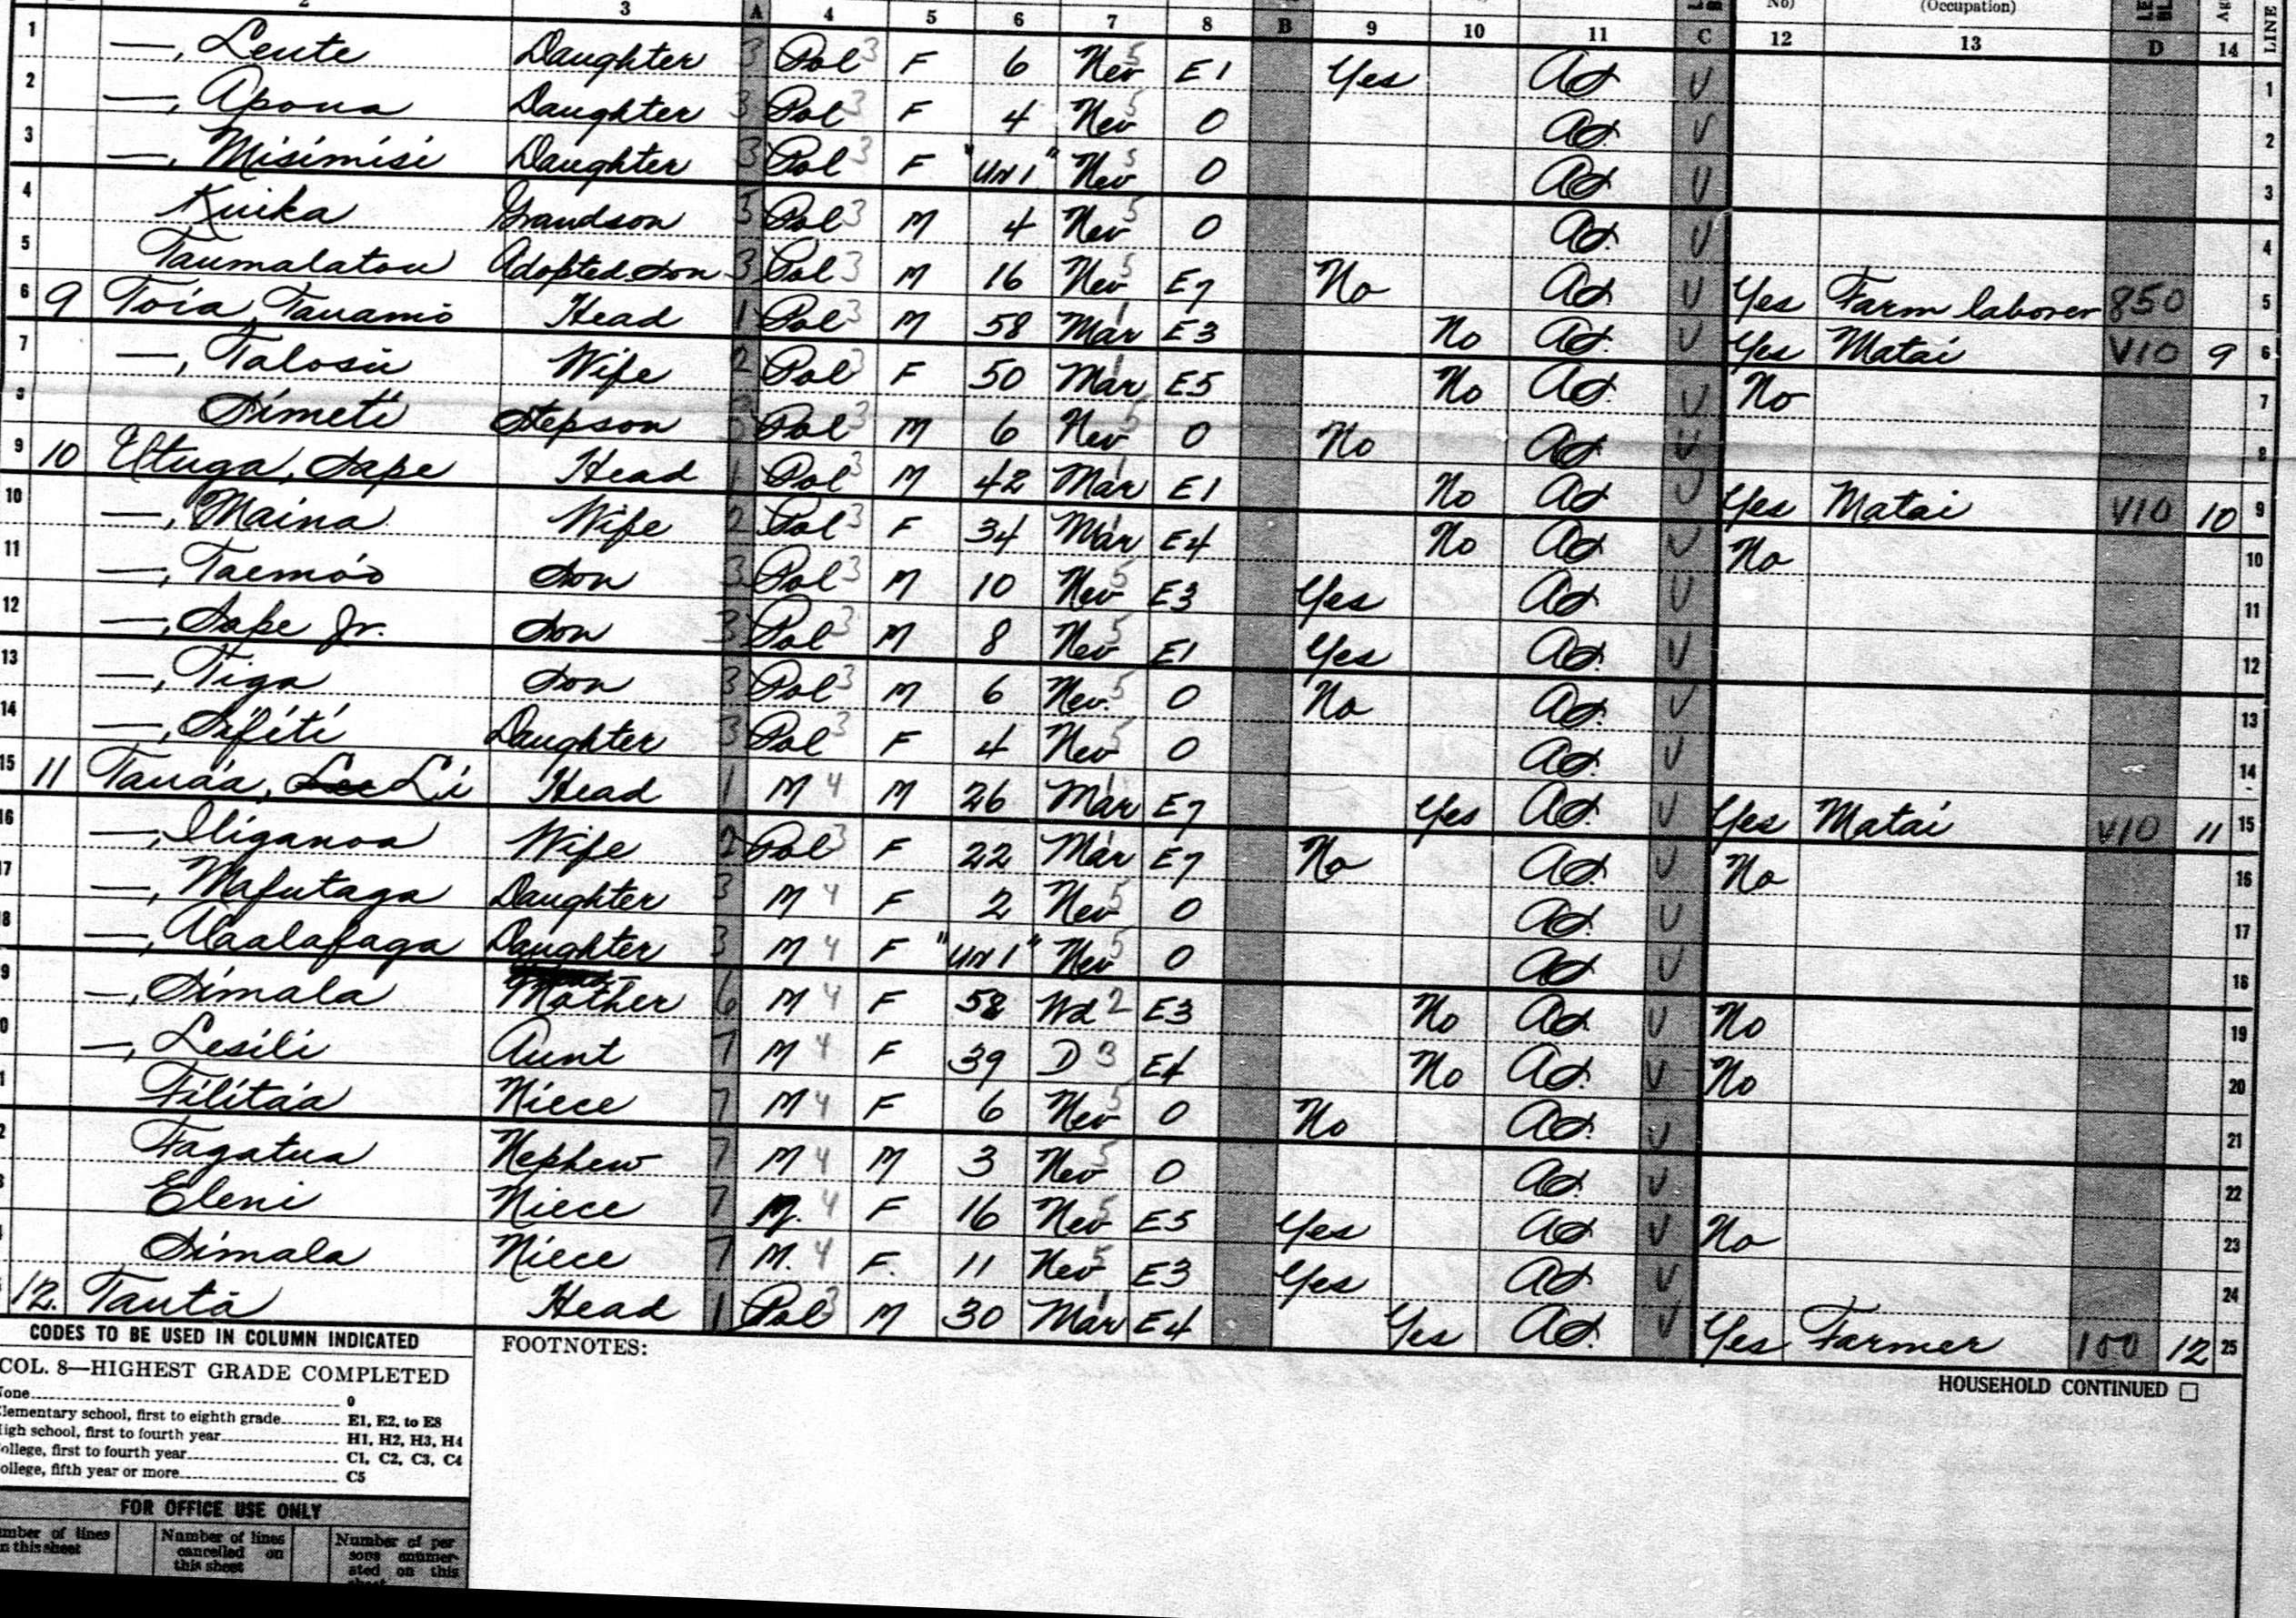 2 3 A 4 5 6 7 8 B 9 10 11 C 12 13 D 14 LINE
No) (Occupation)
1 —, Leute Daughter 3 Pol 3 F 6 Nev 5 E1 Yes AS V 1
2 —, Apoua Daughter 3 Pol 3 F 4 Nev 5 0 AS V 2
3 —, Misimisi Daughter 3 Pol 3 F "Un 1" Nev 5 0 AS V 3
4 Kuika Grandson 5 Pol 3 M 4 Nev 5 0 AS. V 4
5 Taumalatou Adopted son 3 Pol 3 M 16 Nev 5 E7 No AS V Yes Farm laborer 850 5
6 9 Toia, Tauamo Head 1 Pol 3 M 58 Mar 1 E3 No AS. V Yes Matai V10 9 6
7 —, Talosii Wife 2 Pol 3 F 50 Mar 1 E5 No AS V No 7
8 Simeti Stepson 3 Pol 3 M 6 Nev 5 0 No AS V 8
9 10 Utuga, Sape Head 1 Pol 3 M 42 Mar 1 E1 No AS V Yes Matai V10 10 9
10 —, Maina Wife 2 Pol 3 F 34 Mar 1 E4 No AS V No 10
11 —, Taemoo Son 3 Pol 3 M 10 Nev 5 E3 Yes AS V 11
12 —, Sape Jr. Son 3 Pol 3 M 8 Nev 5 E1 Yes AS. V 12
13 —, Tiga Son 3 Pol 3 M 6 Nev. 5 0 No AS. V 13
14 —, Sifiti Daughter 3 Pol 3 F 4 Nev 5 0 AS. V 14
15 11 Tauaa, Li Head 1 M 4 M 26 Mar 1 E7 Yes AS. V Yes Matai V10 11 15
16 —, Iliganoa Wife 2 Pol 3 F 22 Mar 1 E7 No AS. V No 16
17 —, Mafutaga Daughter 3 M 4 F 2 Nev 5 0 AS. V 17
18 —, Alaalafaga Daughter 3 M 4 F "Un 1" Nev 5 0 AS V 18
19 —, Simala Mother 6 M 4 F 58 Wd 2 E3 No AS V No 19
20 —, Lesili Aunt 7 M 4 F 39 D 3 E4 No AS. V No 20
21 Filitaa Niece 7 M 4 F 6 Nev 5 0 No AS. V 21
22 Fagatua Nephew 7 M 4 M 3 Nev 5 0 AS. V 22
23 Eleni Niece 7 M. 4 F 16 Nev 5 E5 Yes AS V No 23
24 Simala Niece 7 M. 4 F. 11 Nev 5 E3 Yes AS V 24
12. Tauta Head 1 Pol 3 M 30 Mar 1 E4 Yes AS. V Yes Farmer 100 12 25
CODES TO BE USED IN COLUMN INDICATED
FOOTNOTES:
HOUSEHOLD CONTINUED
COL. 8—HIGHEST GRADE COMPLETED
None 0
Elementary school, first to eighth grade E1, E2, to E8
High school, first to fourth year H1, H2, H3, H4
College, first to fourth year C1, C2, C3, C4
College, fifth year or more C5
FOR OFFICE USE ONLY
Number of lines on this sheet
Number of lines cancelled on this sheet
Number of persons enumerated on this sheet